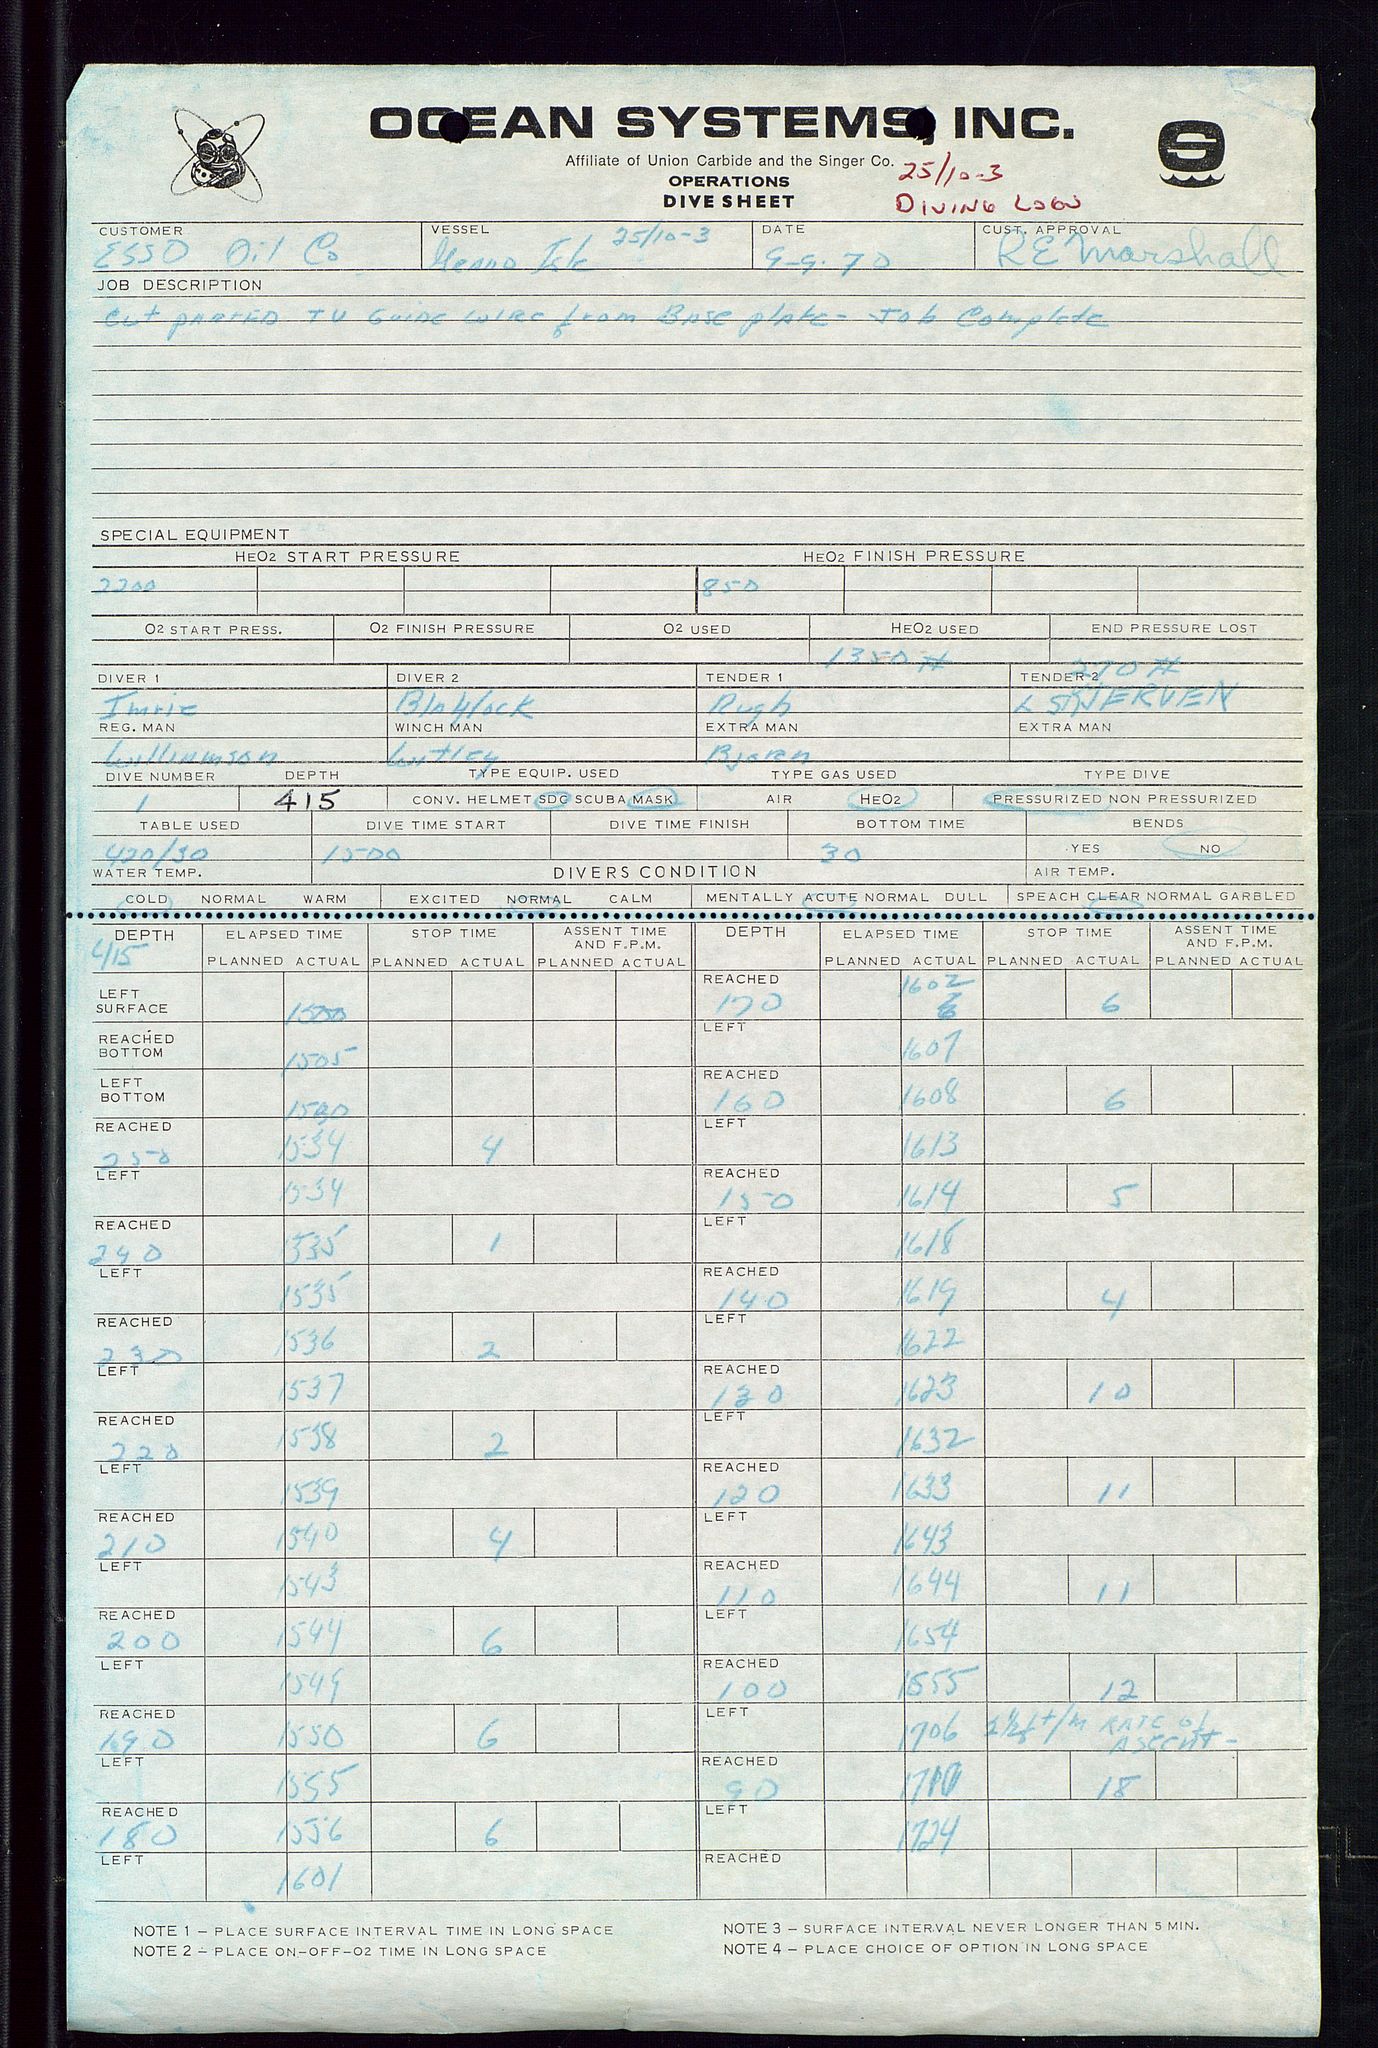 OCEAN SYSTEMS, INC.
Affiliate of Union Carbide and the Singer Co.
25/10-3
OPERATIONS
DIVE SHEET
DIVING LOGS
CUSTOMER VESSEL DATE CUST. APPROVAL
ESSO Oil Co 25/10-3 9-9-70 RE Marshall
JOB DESCRIPTION
Cut parted TV Guide wire from Base plate - Job Complete
SPECIAL EQUIPMENT
HeO2 START PRESSURE HeO2 FINISH PRESSURE
2200 850
O2 START PRESS. O2 FINISH PRESSURE O2 USED HeO2 USED END PRESSURE LOST
1350 # 270 #
DIVER 1 DIVER 2 TENDER 1 TENDER 2
Imrie Blaylock Pugh
REG. MAN WINCH MAN EXTRA MAN EXTRA MAN
Williamson Bjoren
DIVE NUMBER DEPTH TYPE EQUIP. USED TYPE GAS USED TYPE DIVE
1 415 CONV. HELMET SDC SCUBA MASK AIR HeO2 PRESSURIZED NON PRESSURIZED
TABLE USED DIVE TIME START DIVE TIME FINISH BOTTOM TIME BENDS
420/30 1500 30 YES NO
WATER TEMP. DIVERS CONDITION AIR TEMP.
COLD NORMAL WARM EXCITED NORMAL CALM MENTALLY ACUTE NORMAL DULL SPEACH CLEAR NORMAL GARBLED
DEPTH ELAPSED TIME STOP TIME ASSENT TIME AND F.P.M.
415 PLANNED ACTUAL PLANNED ACTUAL PLANNED ACTUAL
LEFT SURFACE 1500
REACHED BOTTOM 1505
LEFT BOTTOM 1530
REACHED 250 1534 4
LEFT 1534
REACHED 240 1535 1
LEFT 1535
REACHED 230 1536 2
LEFT 1537
REACHED 220 1538 2
LEFT 1539
REACHED 210 1540 4
LEFT 1543
REACHED 200 1544 6
LEFT 1549
REACHED 190 1550 6
LEFT 1555
REACHED 180 1556 6
LEFT 1601
DEPTH ELAPSED TIME STOP TIME ASSENT TIME AND F.P.M.
PLANNED ACTUAL PLANNED ACTUAL PLANNED ACTUAL
REACHED 170 1602 6
LEFT 1607
REACHED 160 1608 6
LEFT 1613
REACHED 150 1614 5
LEFT 1618
REACHED 140 1619 4
LEFT 1622
REACHED 130 1623 10
LEFT 1632
REACHED 120 1633 11
LEFT 1643
REACHED 110 1644 11
LEFT 1654
REACHED 100 1655 12
LEFT 1706 ft/m RATE of ASCENT-
REACHED 90 1710 18
LEFT 1724
REACHED
NOTE 1 – PLACE SURFACE INTERVAL TIME IN LONG SPACE
NOTE 2 – PLACE ON-OFF-O2 TIME IN LONG SPACE
NOTE 3 – SURFACE INTERVAL NEVER LONGER THAN 5 MIN.
NOTE 4 – PLACE CHOICE OF OPTION IN LONG SPACE